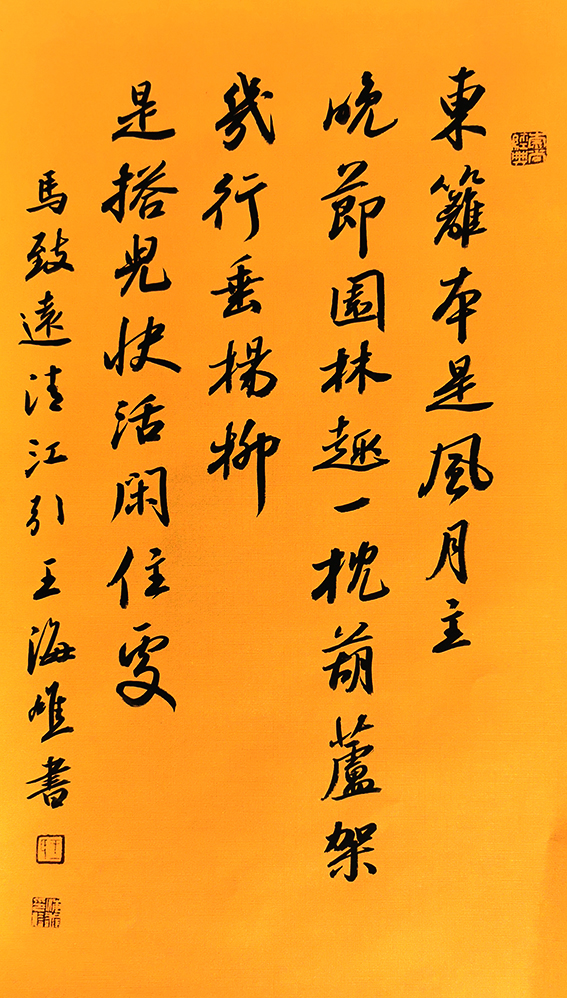 東籬本是風月主
晚節園林趣一枕葫蘆架
幾行垂楊柳
是搭兒快活閑住處
馬致遠清江引王海雄書